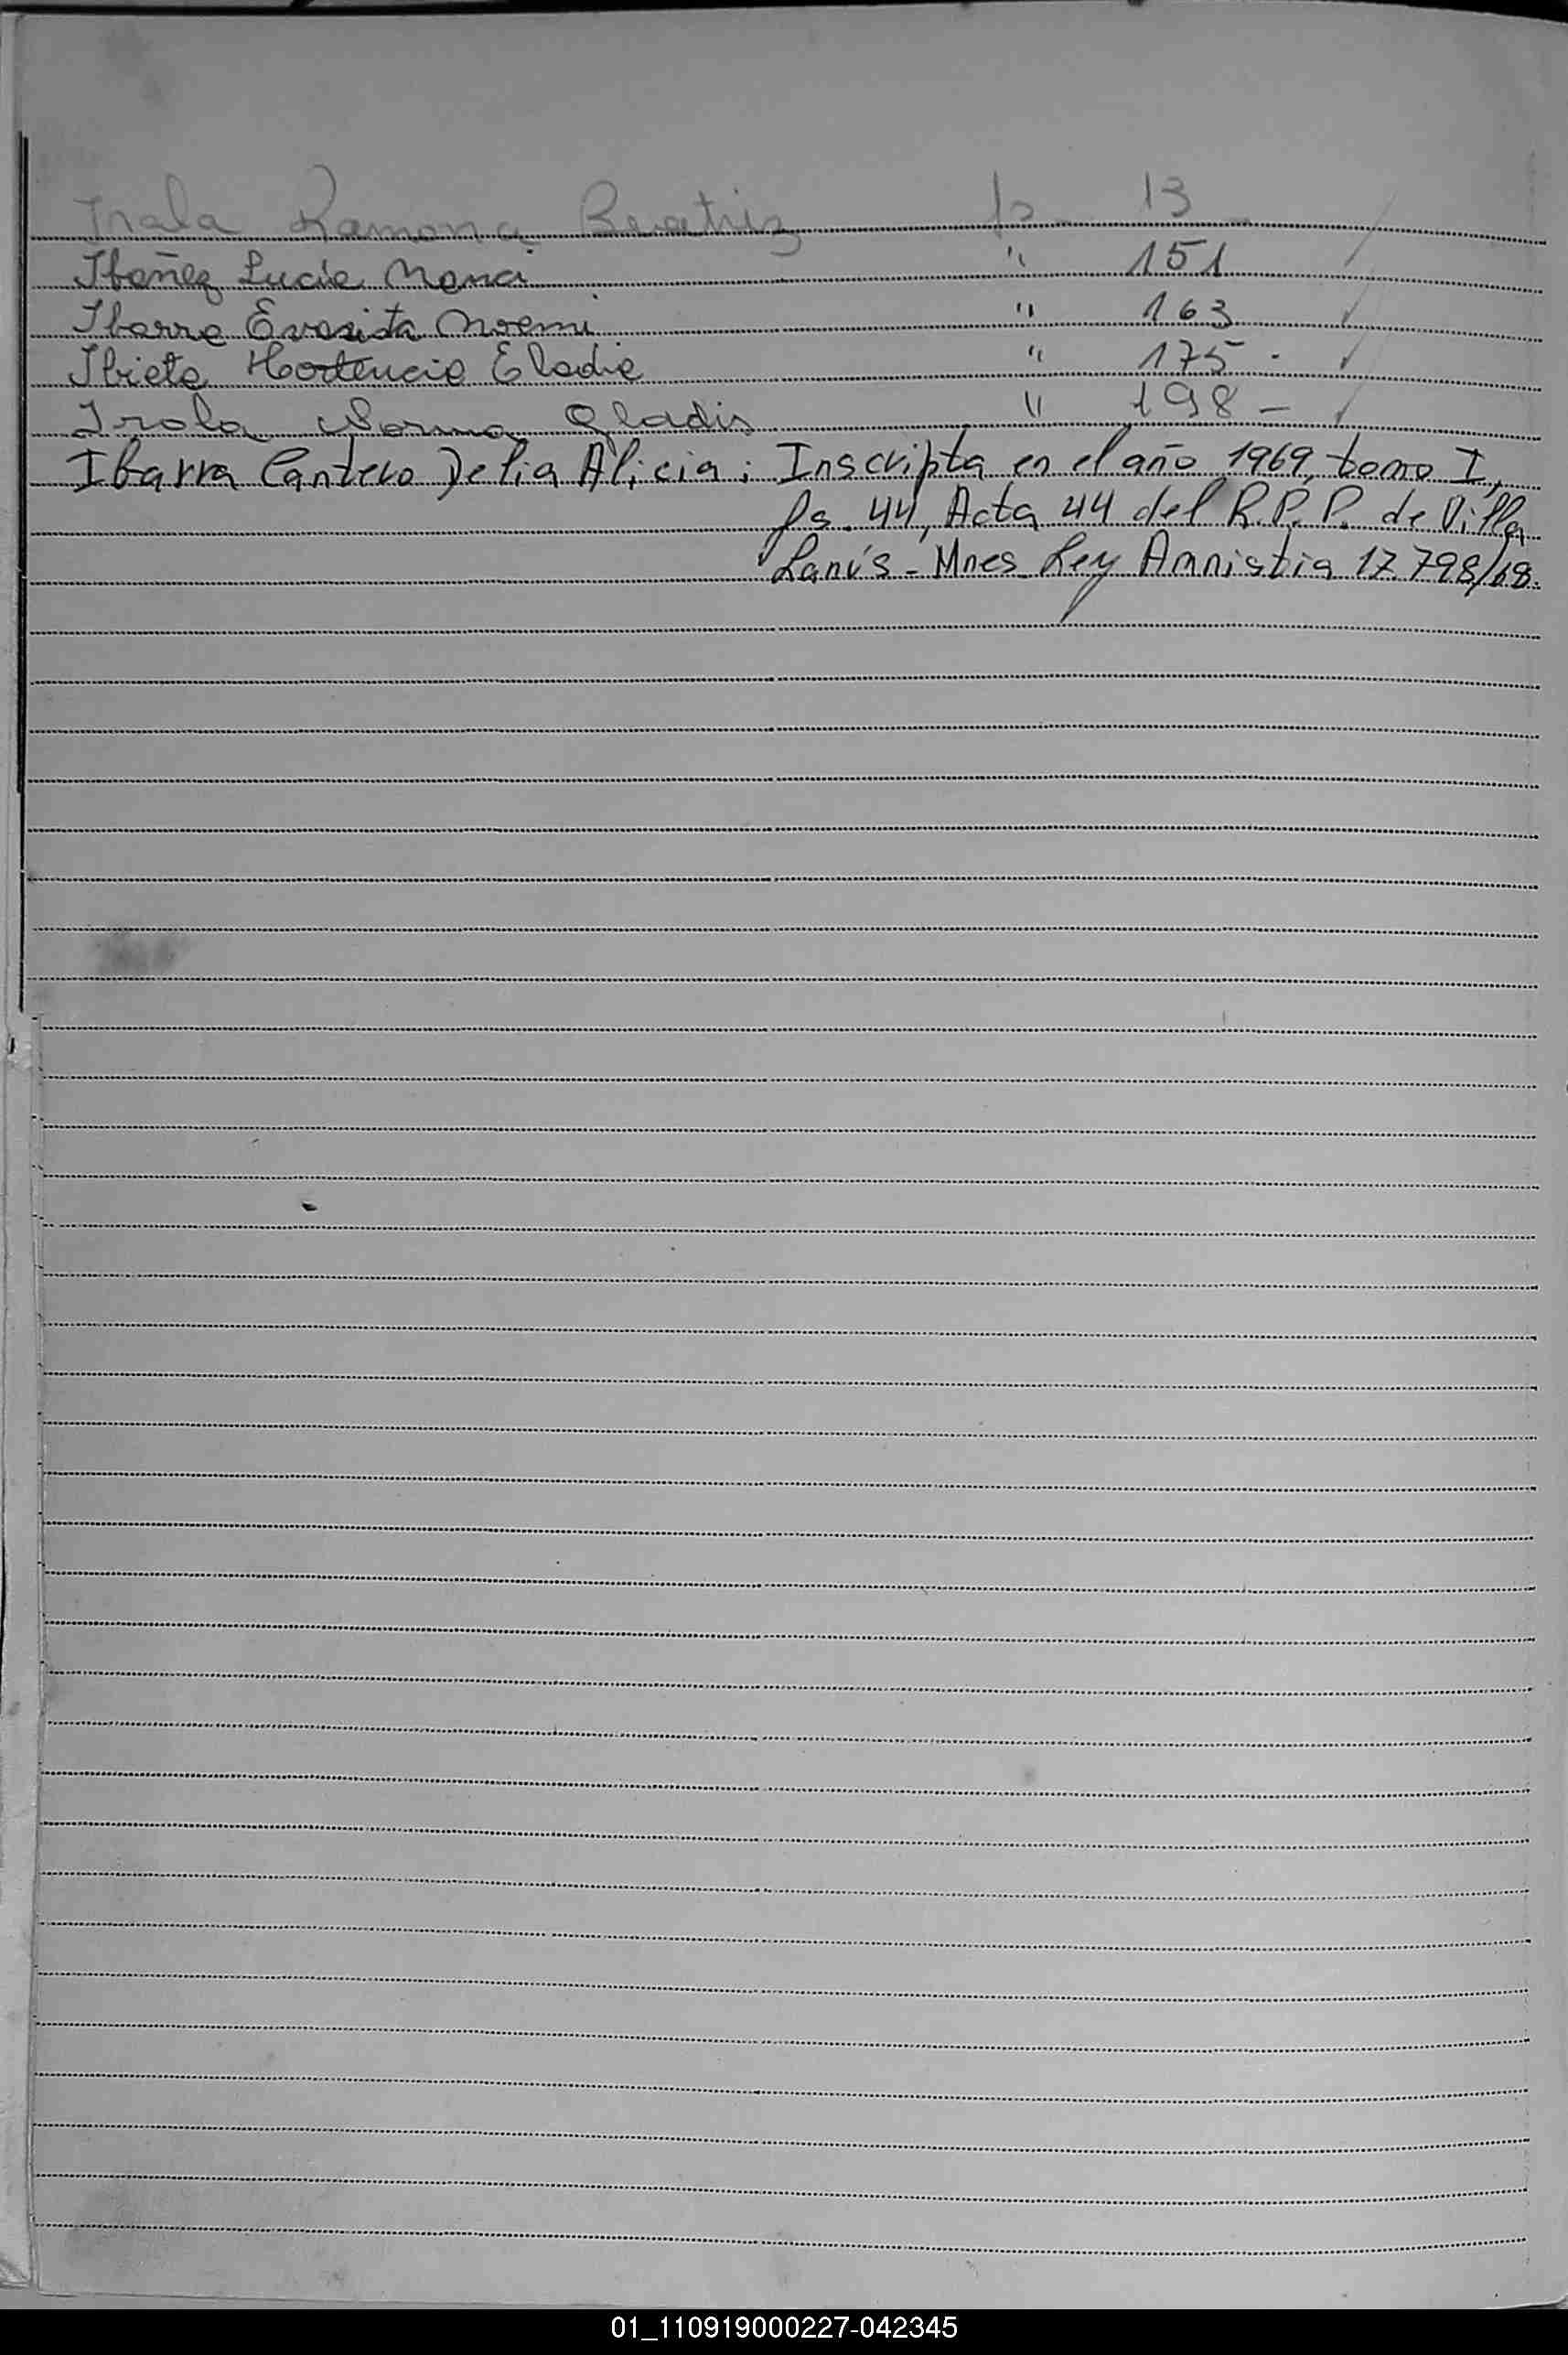 Irala Ramona Beatriz fs - 13 -
Ibañez Lucia Nanci " 151
Ibarra Evarista Noemi " 163
Ibieta Hortencia Eladia " 175 -
Irala Norma Gladis " 198 -
Ibarra Cantero Delia Alicia: Inscripta en el año 1969, tomo I,
fs. 44, Acta 44 del R.P.P. de Villa
Lanús - Mnes. Ley Amnistia 17.798/68.
01_110919000227-042345